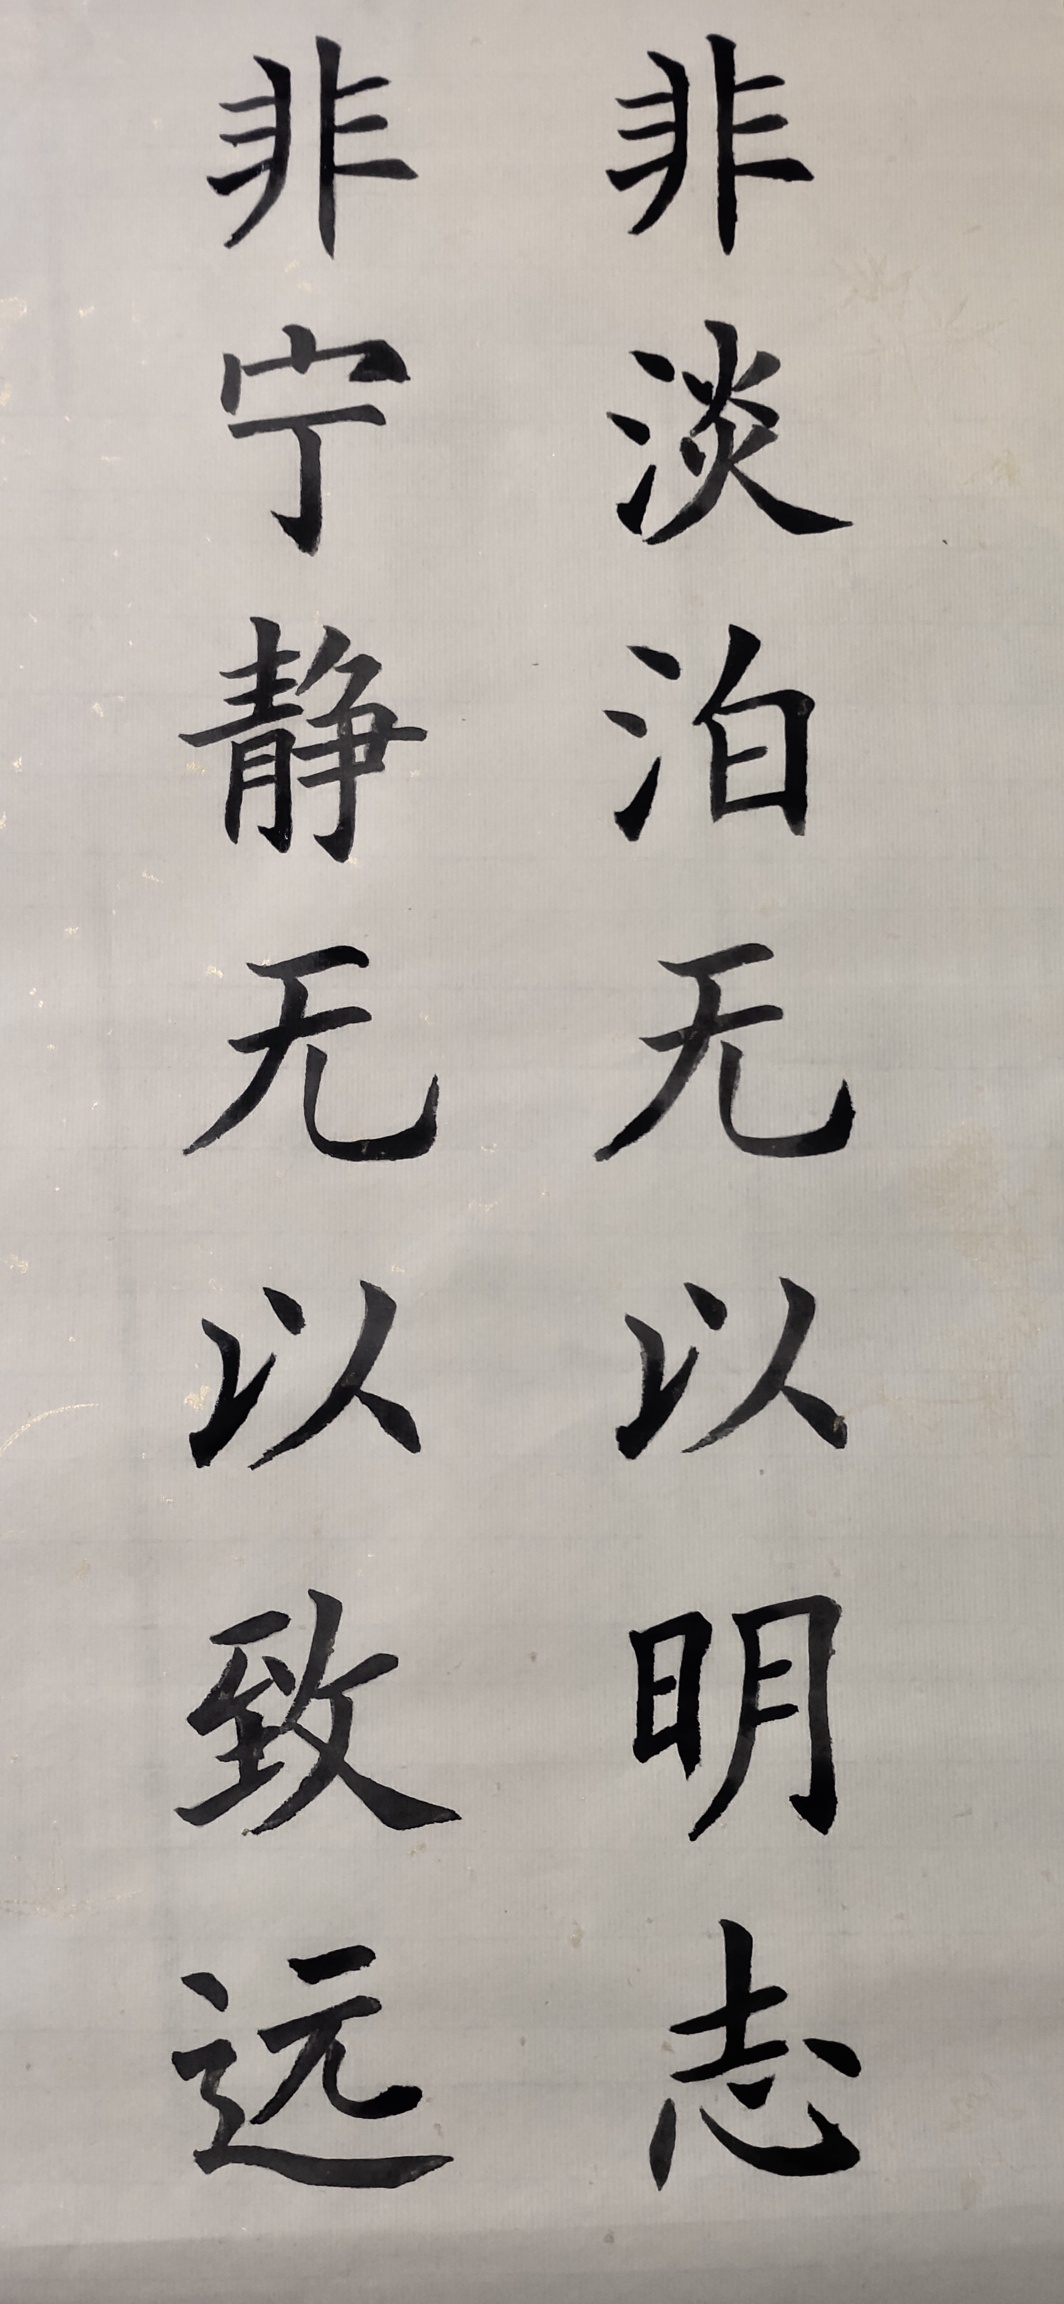 非淡泊无以明志
非宁静无以致远